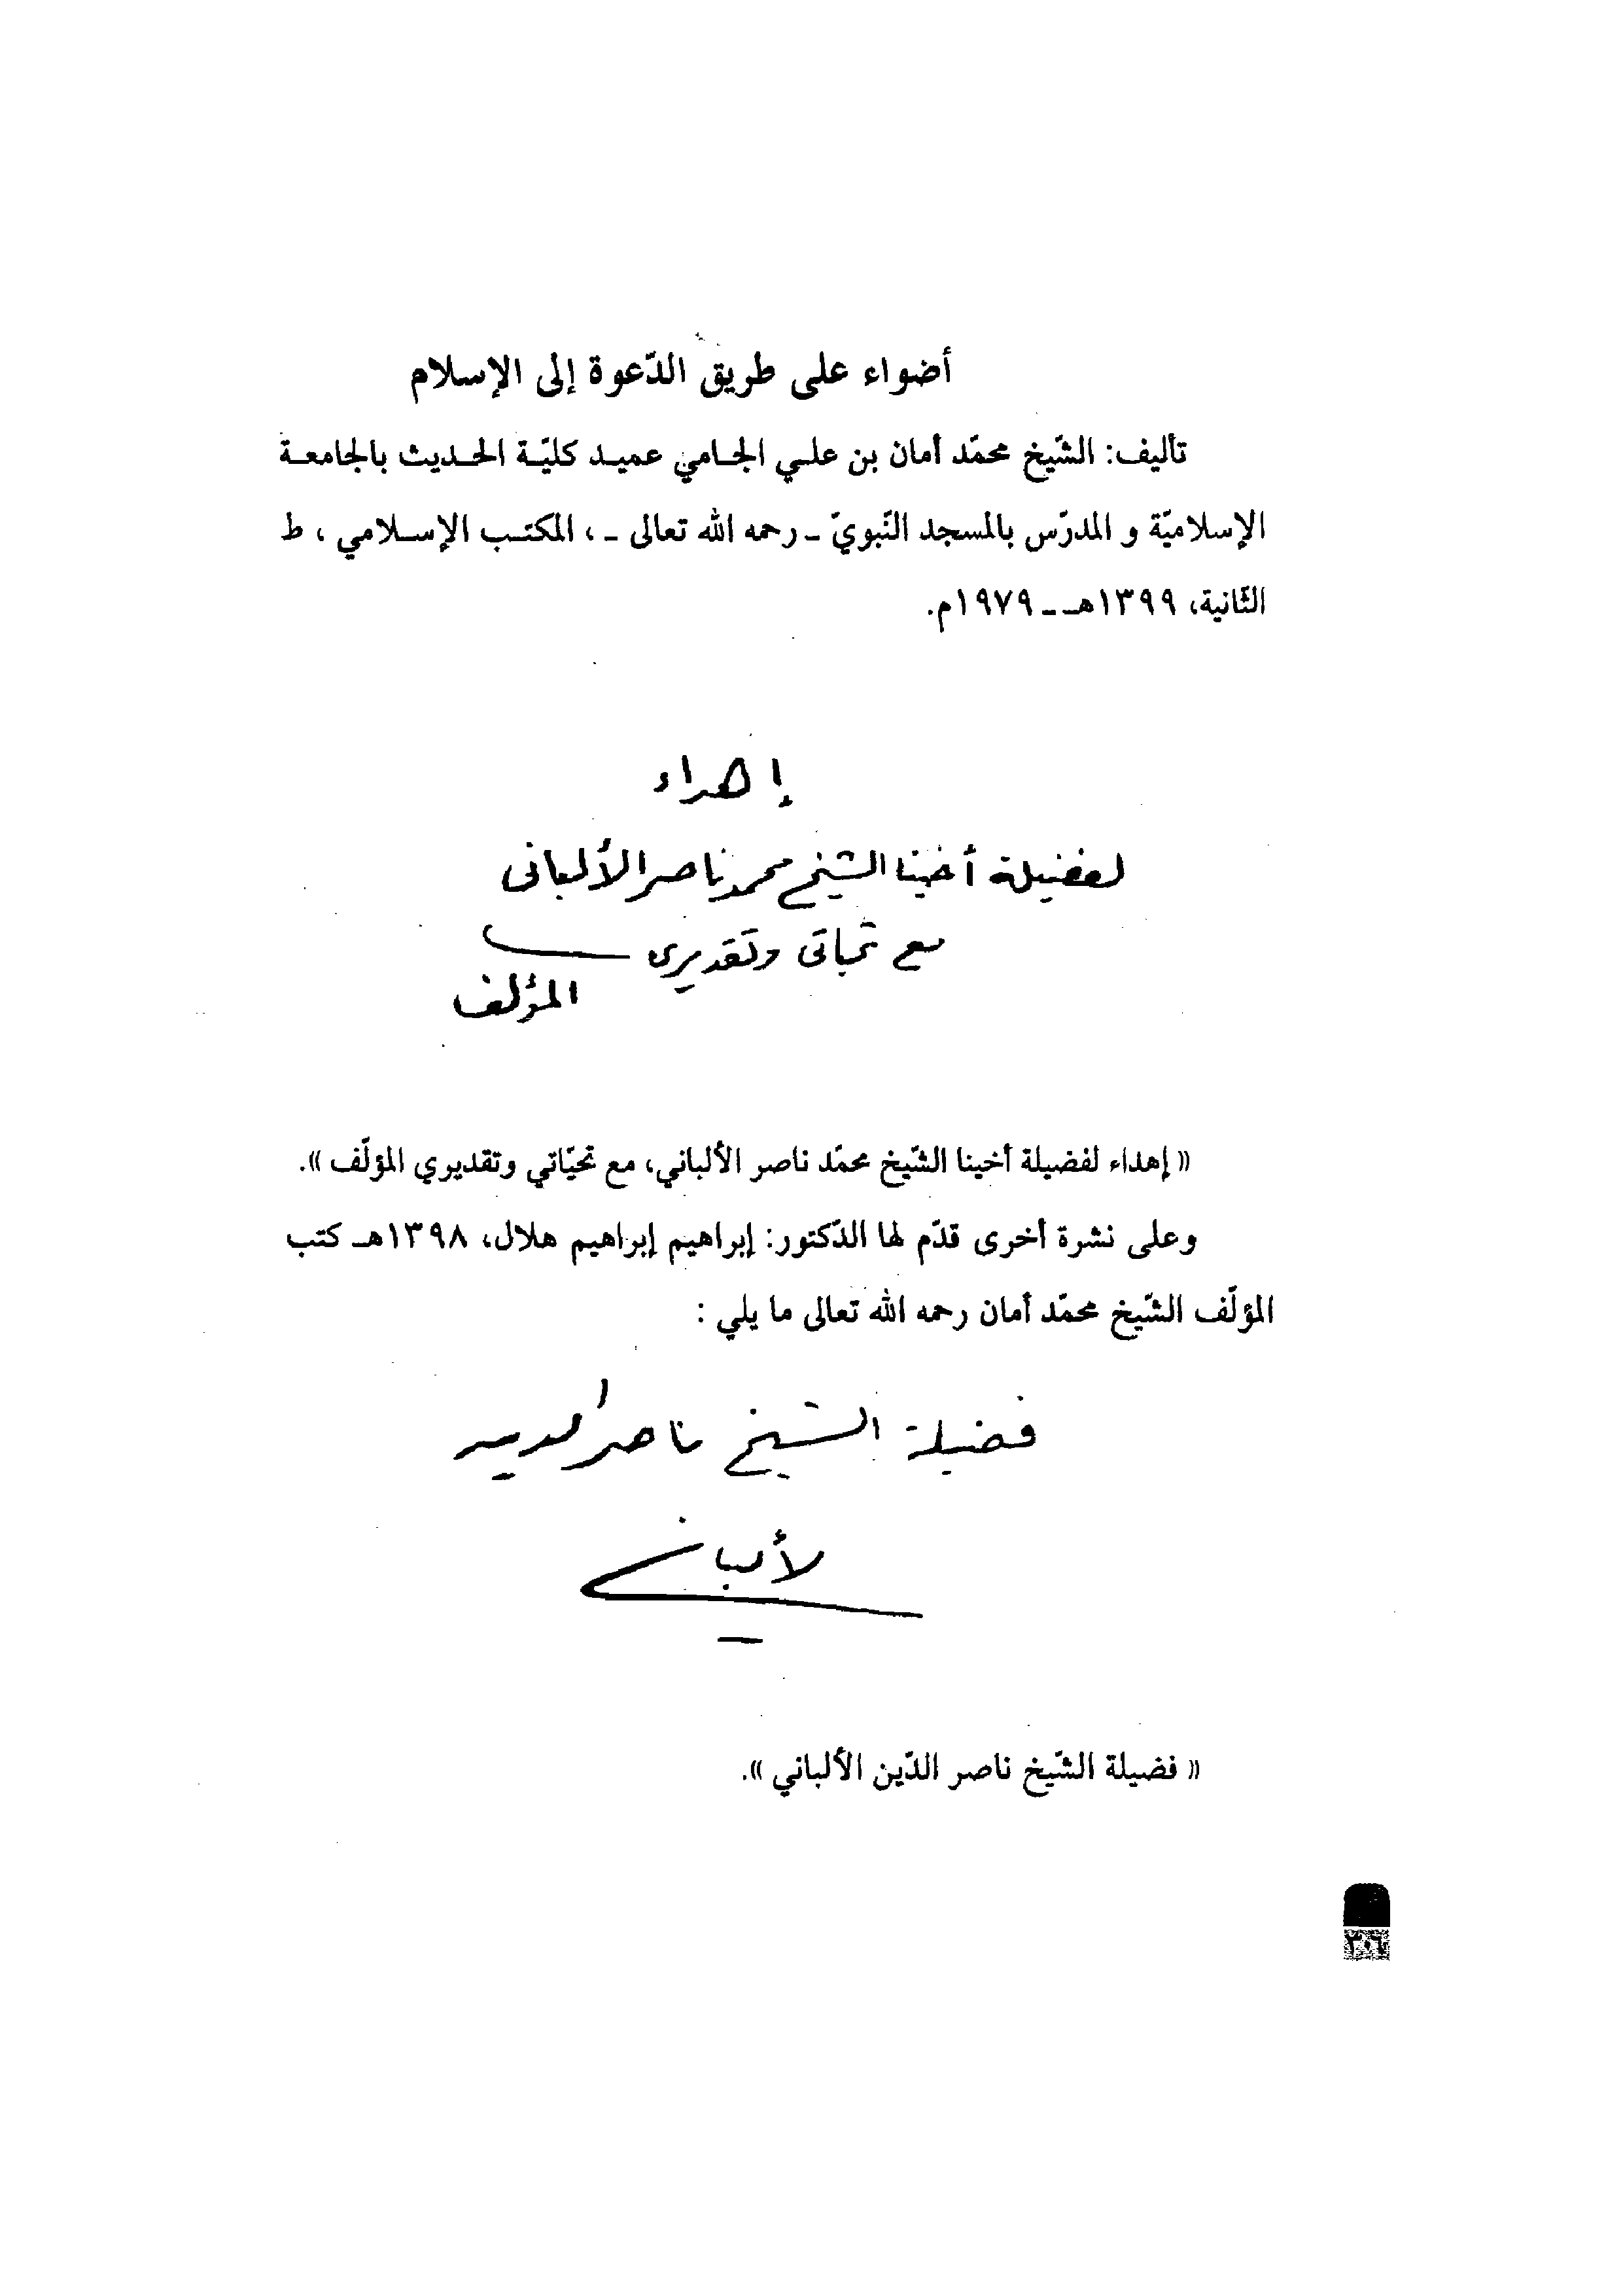 أضواء على طريق الدّعوة إلى الإسلام
تأليف: الشّيخ محمّد أمان بن علـي الجـامي عميـد كليّـة الحـديث بالجامعـة
الإسلاميّة و المدرّس بالمسجد النّبويّ ـ رحمه الله تعالى ـ، المكتـب الإسـلامي ، ط
الثّانية، ١٣٩٩هـ ـ ١٩٧٩م.
إهداء
لفضيلة أخينا الشيخ محمد ناصر الألبانى
مع تحياتى وتقديرى
المؤلف
« إهداء لفضيلة أخينا الشّيخ محمّد ناصر الألباني، مع تحيّاتي وتقديري المؤلّف ».
وعلى نشرة أخرى قدّم لها الدّكتور: إبراهيم إبراهيم هلال، ١٣٩٨هـ كتب
المؤلّف الشّيخ محمّد أمان رحمه الله تعالى ما يلي :
فضيلة الشيخ ناصر الدين
الألباني
« فضيلة الشّيخ ناصر الدّين الألباني ».
٣٠٦